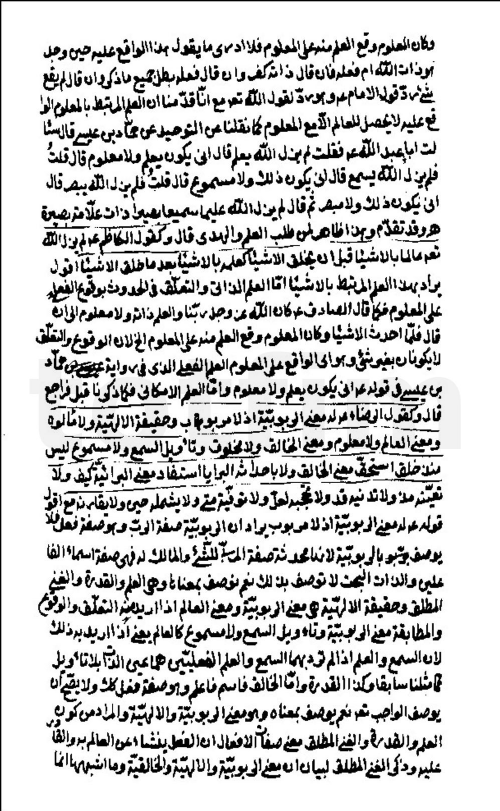 وكان المعلوم وقع العلم منه على المعلوم فلا ادرى ما يقول هذا الواقع عليه حين وجد
هو ذات الله ام فعله فان قال ذاته كفر وان قال فعله بطل جميع ما ذكر وان قال لم يقع
شئ ردّ قول الامام ع وهو ردّ لقول الله تع مع انّا قدّمنا ان العلم المرتبط بالمعلوم الوا
قع عليه لا يحصل للعالم الّا مع المعلوم كما نقلنا عن التوحيد عن حماد بن عيسى قال سئا
لت ابا عبد الله ع فقلت لم يزل الله يعلم قال انى يكون يعلم ولا معلوم قال قلت
فلم يزل الله يسمع قال انى يكون ذلك ولا مسموع قال قلت فلم يزل الله يبصر قال
انى يكون ذلك ولا مبصر ثم قال لم يزل الله عليما سميعا بصيرا ذات علّامة بصيرة
وقد تقدّم وهذا ظاهر لمن طلب العلم والهدى قال وكقول الكاظم ع لم يزل الله
تع عالما بالاشيا قبل ان يخلق الاشيا كعلمه بالاشيا بعد ما خلق الاشيا اقول
يراد بهذا العلم المرتبط بالاشيا امّا العلم الذاتى والتعلّق فى الحدوث بوقوع الفعل
على المعلوم فكما قال الصادق ع كان الله عز وجل ربّنا والعلم ذاته ولا معلوم الى ان
قال فلمّا احدث الاشيا وكان المعلوم وقع العلم منه على المعلوم الخ لان الوقوع والتعلّق
لا يكونان بغير شئ وهو اى الواقع على المعلوم العلم الفعلى الذى فى رواية حمّاد
بن عيسى فى قوله ع انى يكون يعلم ولا معلوم وامّا العلم الامكانى فكما ذكرنا قبل فراجع
قال وكقول الرضا ع له معنى الربوبيّة اذ لا مربوب وحقيقة الالهيّة ولا مالوه
ومعنى العالم ولا معلوم ومعنى الخالق ولا مخلوق وتاويل السمع ولا مسموع ليس
منذ خلق استحقّ معنى الخالق ولا باحداثه البرايا استفاد معنى البرائيّة كيف ولا
تغيّبه مذ ولا تدنيه قد ولا تحجبه لعلّ ولا توقّته متى ولا يشمله حين ولا يقارنه مع اقول
قوله ع له معنى الربوبيّة اذ لا مربوب يراد ان الربوبيّة صفة الربّ وهو صفة فعل فلا
يوصف بالربوبيّة لانها محدثة صفة المربّى للشئ والمالك له فهى صفة اسماء الفا
علين والذات البحت لا توصف بذلك نعم يوصف بمعناه وهى العلم والقدرة والغنى
المطلق وحقيقة الالهيّة هى معنى الربوبيّة ومعنى العالم اذا اريد منه التعلّق والوقوع
والمطابقة معنى الربوبيّة وتاويل السمع ولا مسموع كالعالم يعنى اذا اريد به ذلك
لان السمع والعلم اذا لم ترد بهما السمع والعلم الفعليّين هما عين الذات بلا تاويل
كما مثلنا سابقا وكذا القدرة وامّا الخالق فاسم فاعل وهو صفة فعل كذلك ولا يصحّ ان
يوصف الواجب تع نعم يوصف بمعناه وهو معنى الربوبيّة والالهيّة والمراد من كون
العلم والقدرة والغنى المطلق معنى صفات الافعال ان الفعل ينشاء عن العالم به والقا
عليه وذكر الغنى المطلق لبيان ان معنى الربوبيّة والالهيّة والخالقيّة وما اشبهها انّما